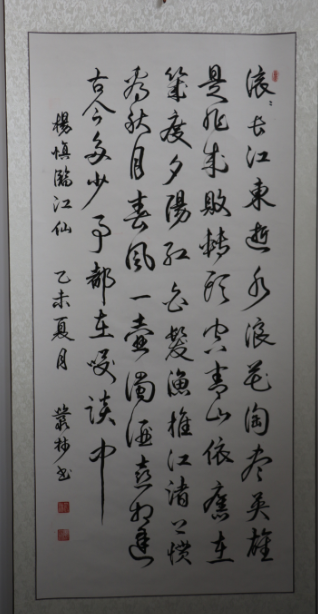 滚滚长江東逝水浪花淘尽英雄
是非成败转头空青山依舊在
几度夕陽红白髮渔樵江渚上惯
看秋月春風一壶濁酒喜相逢
古今多少事都在咲谈中
楊慎臨江仙 乙未夏月 书